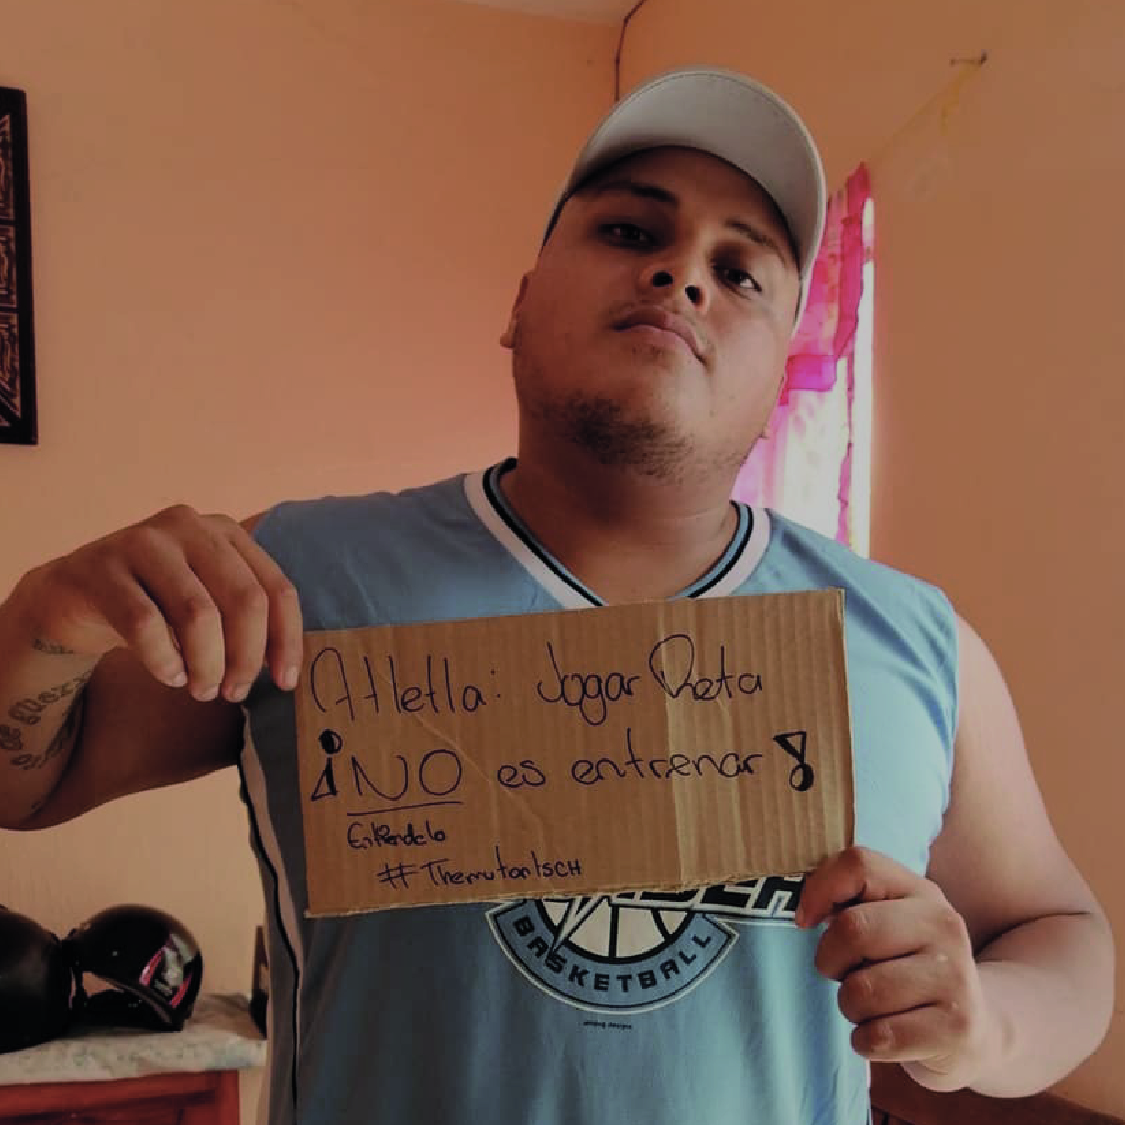 Atletla: Jogar Reta
¡NO es entrenar!
Entiendelo
#ThemutantsCH
BASKETBALL